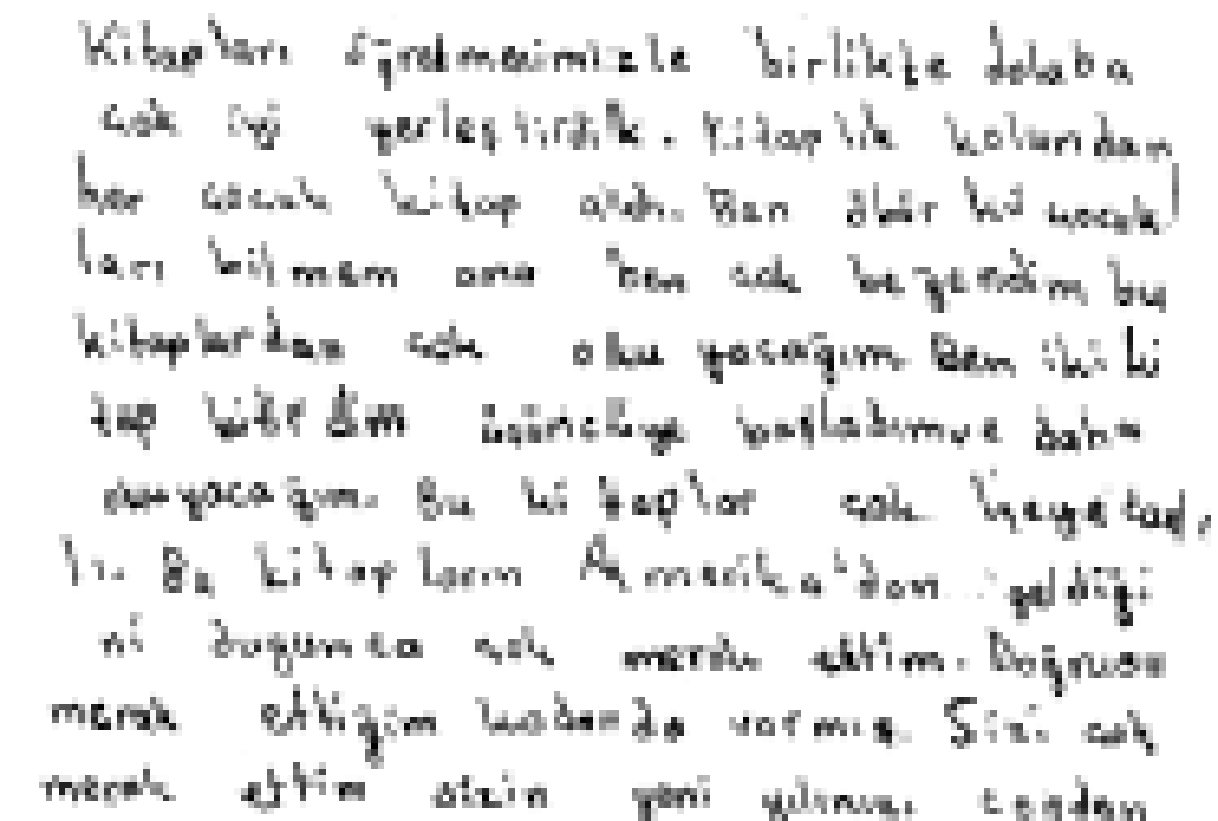 Kitapları öğretmenimizle birlikte dolaba
çok iyi yerleştirdik. Kitaplık kolundan
her çocuk kitap aldı. Ben öbür kü çocuk
ları bilmem ama ben çok beğendim bu
kitaplardan çok oku yacağım Ben iki ki
tap bitirdim üçüncüye başladım ve daha
yacağım. Bu ki taplar çok heyecan
lı. Bu kitapların Amerika'dan geldiği
ni duyunca çok merak ettim. Doğrusu
merak ettiğim kadarda varmış. Sizi çok
merak ettim sizin yeni yılınızı